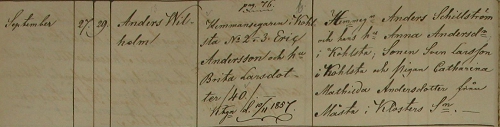 pag. 76.
September 27 29. Anders Wil-
helm
Hemmansegaren i Kohl-
sta N: 2. o. 3. Eric
Andersson och hu
Brita Larsdot-
ter /40./
d. 12/11 1857.
Hemmeg Anders Schillström
och hans hu Anna Andersdr
i Kohlsta; Sonen Sven Larsson
i Kohlsta och pigan Catharina
Mathilda Andersdotter från
Måsta i Klosters Sn.